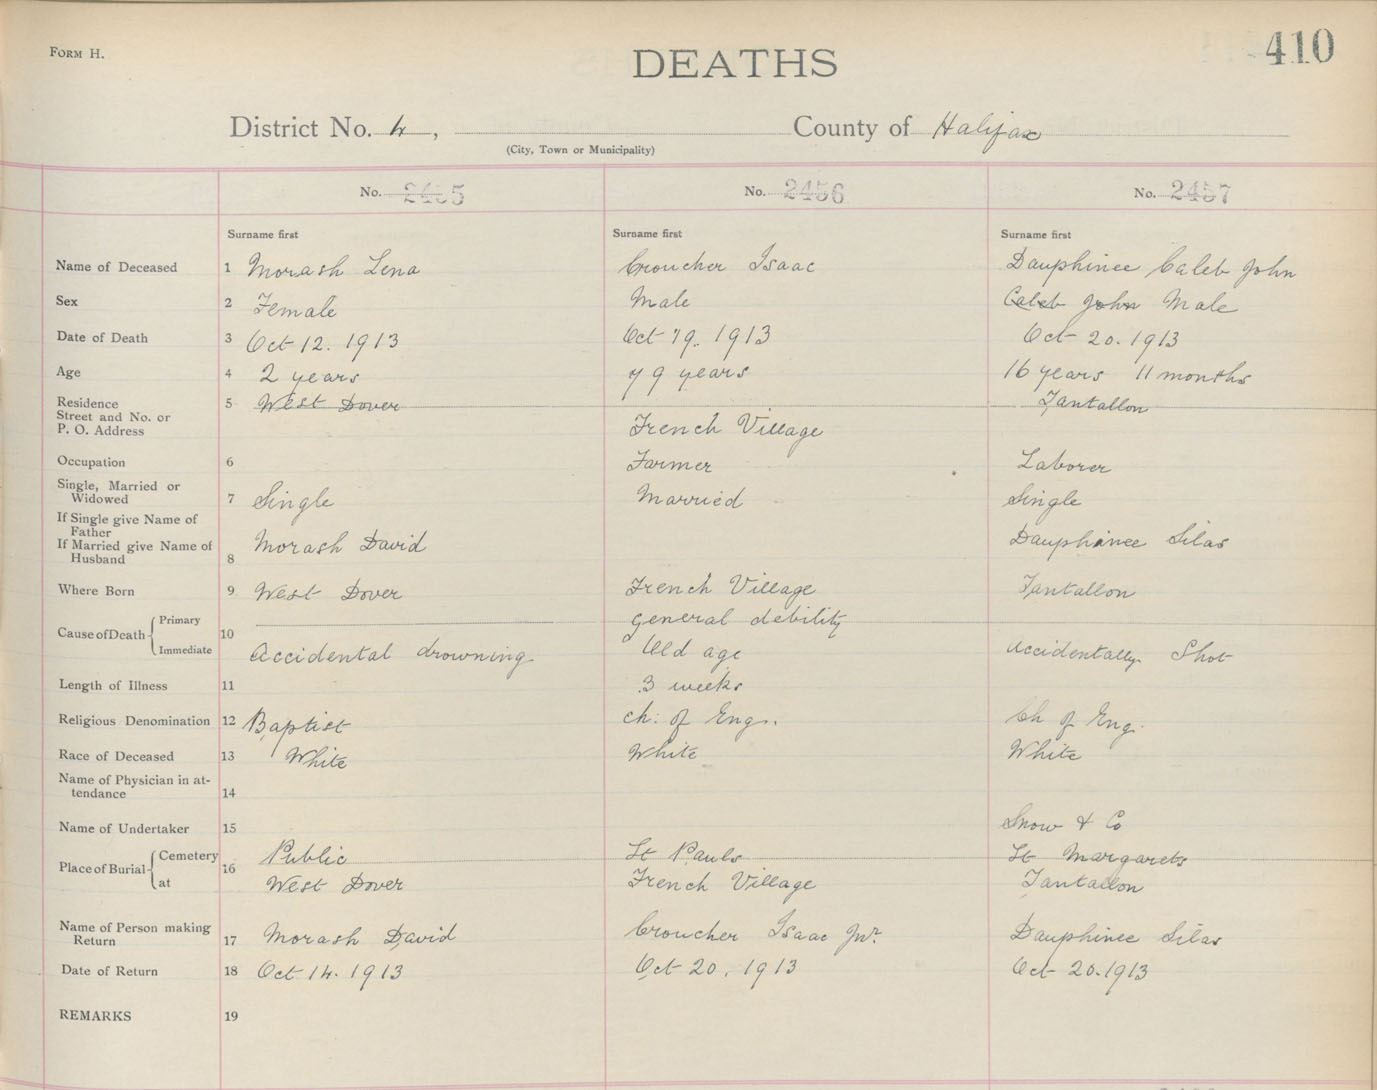 FORM H.
DEATHS
410
District No. 4, County of Halifax
(City, Town or Municipality)
No. 2455 No. 2456 No. 2457
Surname first Surname first Surname first
Name of Deceased 1 Morash Lena Croucher Isaac Dauphinee Caleb John
Sex 2 Female Male Caleb John Male
Date of Death 3 Oct 12. 1913 Oct 19. 1913 Oct 20. 1913
Age 4 2 years 79 years 16 years 11 months
Residence 5 West Dover Tantallon
Street and No. or
P. O. Address French Village
Occupation 6 Farmer Laborer
Single, Married or
Widowed 7 Single Married Single
If Single give Name of
Father
If Married give Name of Morash David Dauphinee Silas
Husband 8
Where Born 9 West Dover French Village Tantallon
Cause of Death Primary general debility
10
Immediate Accidental drowning Old age accidentally Shot
Length of Illness 11 3 weeks
Religious Denomination 12 Baptist ch: of Eng. Ch of Eng.
Race of Deceased 13 White White White
Name of Physician in at-
tendance 14
Name of Undertaker 15 Snow & Co
Place of Burial Cemetery 16 Public St Pauls St Margarets
at West Dover French Village Tantallon
Name of Person making
Return 17 Morash David Croucher Isaac Jnr. Dauphinee Silas
Date of Return 18 Oct 14. 1913 Oct 20. 1913 Oct 20. 1913
REMARKS 19